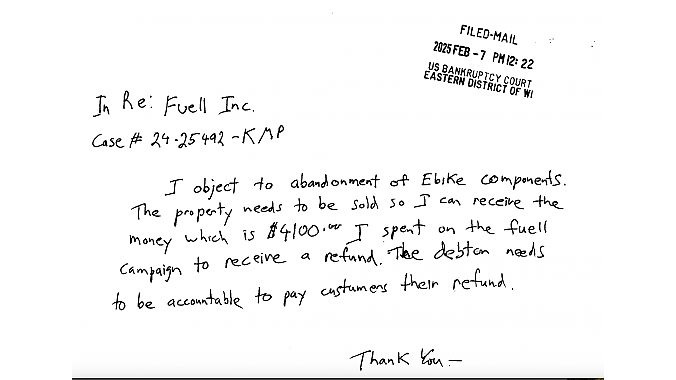 FILED-MAIL
2025 FEB -7 PM 12: 22
US BANKRUPTCY COURT
EASTERN DISTRICT OF WI
In Re: Fuell Inc.
Case # 24-25492-KMP
I object to abandonment of EbiKe components.
The property needs to be sold so I can receive the
money which is $4100.00 I spent on the fuell
campaign to receive a refund. The debtor needs
to be accountable to pay custumers their refund.
Thank You —